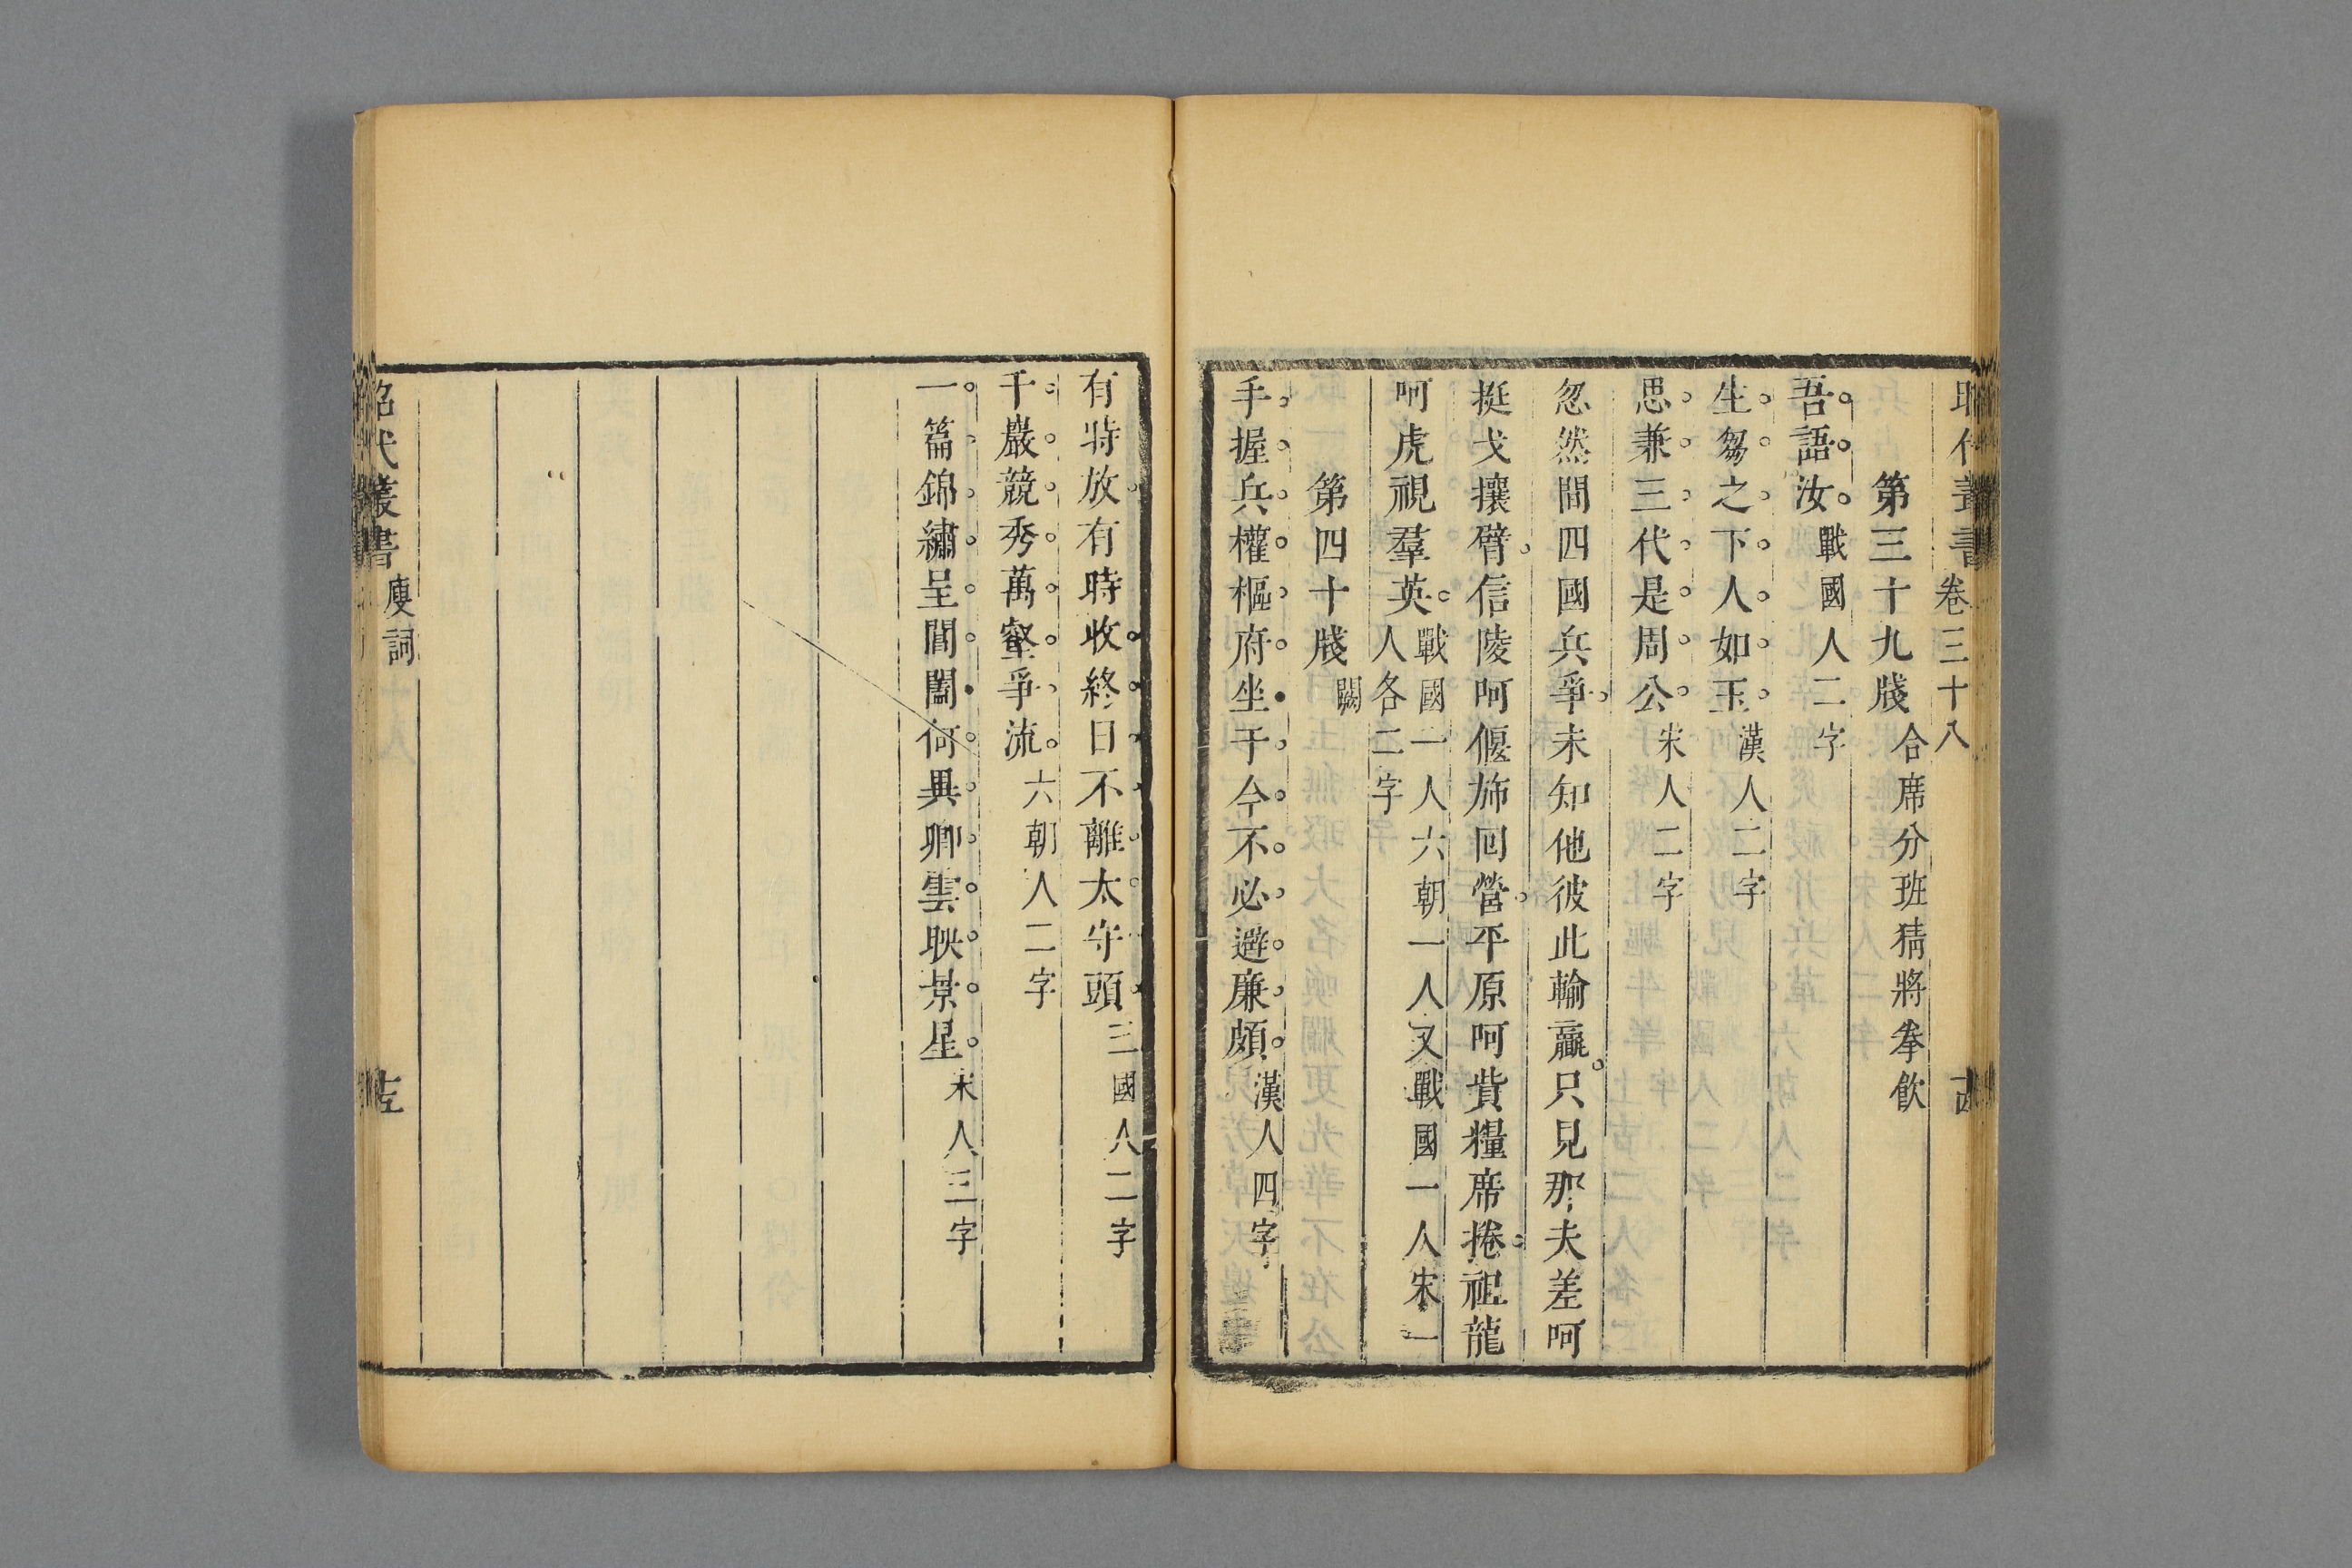 昭代叢書 卷三十八
第三十九牋 合席分班猜將拳飮
吾語汝 戰國人二字
生芻之下人如玉 漢人二字
思兼三代是周公 宋人二字
忽然間四國兵爭未知他彼此輸贏只見那夫差呵
挺戈攘臂信陵呵偃斾回營平原呵貲糧席捲祖龍
呵虎視羣英 戰國一人六朝一人又戰國一人宋一
人各二字
第四十牋 闕
手握兵權樞府坐于今不必避廉頗 漢人四字
有時放有時收終日不離太守頭 三國人二字
千巖競秀萬壑爭流 六朝人二字
一篇錦繡呈閶闔何異卿雲映景星 宋人三字
昭代叢書 廋詞